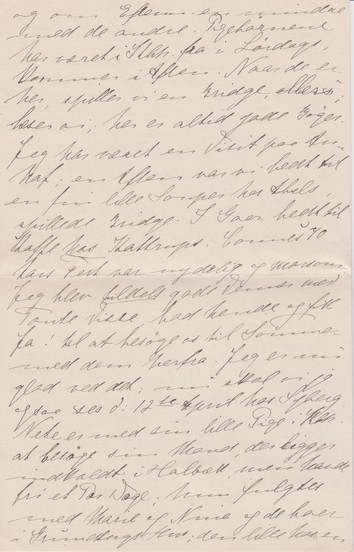 og om Eftern en mindre
med de andre. Pigebørnene
har været i Kbh. fra i Lørdags,
kommer i Aften. Naar de er
her, spilles vi en Bridge, ellers
læser vi, her er altid gode Bøger.
Jeg har været en Visit paa
en Aften var vi bedt til
en fin lille Souper hos Abels,
spillede Bridge. I Gaar bedt til
Kaffe hos Kattrups. 70
Aars Fest var nydelig og morsom
Jeg blev gode Venner med
Tante Visse, bad hende og fik
Ja! til at besøge os til Sommer
med dem herfra. Jeg er nu
glad ved det, nu skal vi jo
ogsaa ses d. 12te April hos Syberg.
er med sin lille Pige i Kbh.
at besøge sin Mand, der ligger
indkaldt i Holbæk, men havde
fri et Par Dage. Hun fulgtes
med Marie og Nine og de boer
i Grundtvigs Hus; den lille har en